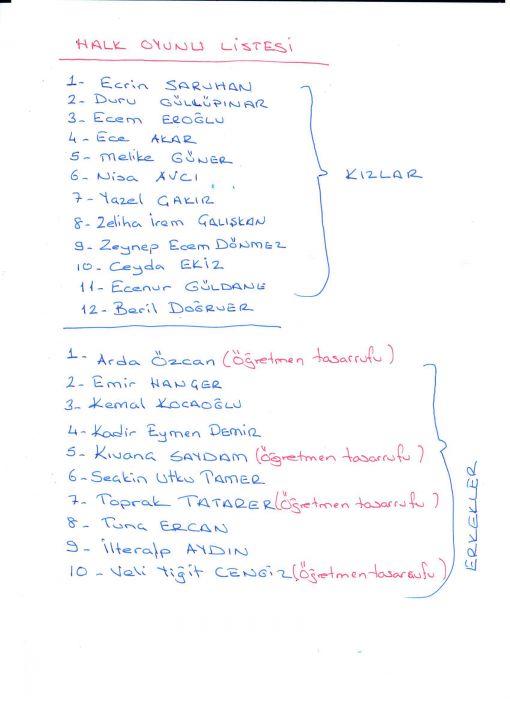 HALK OYUNU LİSTESİ
1- Ecrin SARUHAN
2- Duru GÜLLÜPINAR
3- Ecem EROĞLU
4- Ece AKAR
5- Melike GÜNER
6- Nisa AVCI
7- Yazel ÇAKIR
8- Zeliha İrem ÇALIŞKAN
9- Zeynep Ecem DÖNMEZ
10- Ceyda EKİZ
11- Ecenur GÜLDANE
12- Beril DOĞRUER
KIZLAR
1- Arda Özcan (Öğretmen tasarrufu)
2- Emir HANÇER
3- Kemal KOCAOĞLU
4- Kadir Eymen DEMİR
5- Kıvanç SAYDAM (Öğretmen tasarrufu)
6- Seçkin Utku TAMER
7- Toprak TATARER (Öğretmen tasarrufu)
8- Tuna ERCAN
9- İlteralp AYDIN
10- Veli Yiğit CENGİZ (Öğretmen tasarrufu)
ERKEKLER